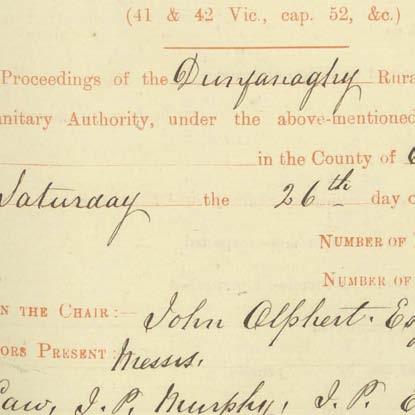 (41 & 42 Vic., cap. 52, &c.)
Proceedings of the Dunfanaghy Rura
anitary Authority, under the above-mentioned
in the County of
Saturday the 26th day o
NUMBER OF
NUMBER OF
N THE CHAIR :— John Olphert. Esq
ORS PRESENT : Messrs.
Law, J.P. Murphy, J.P. E